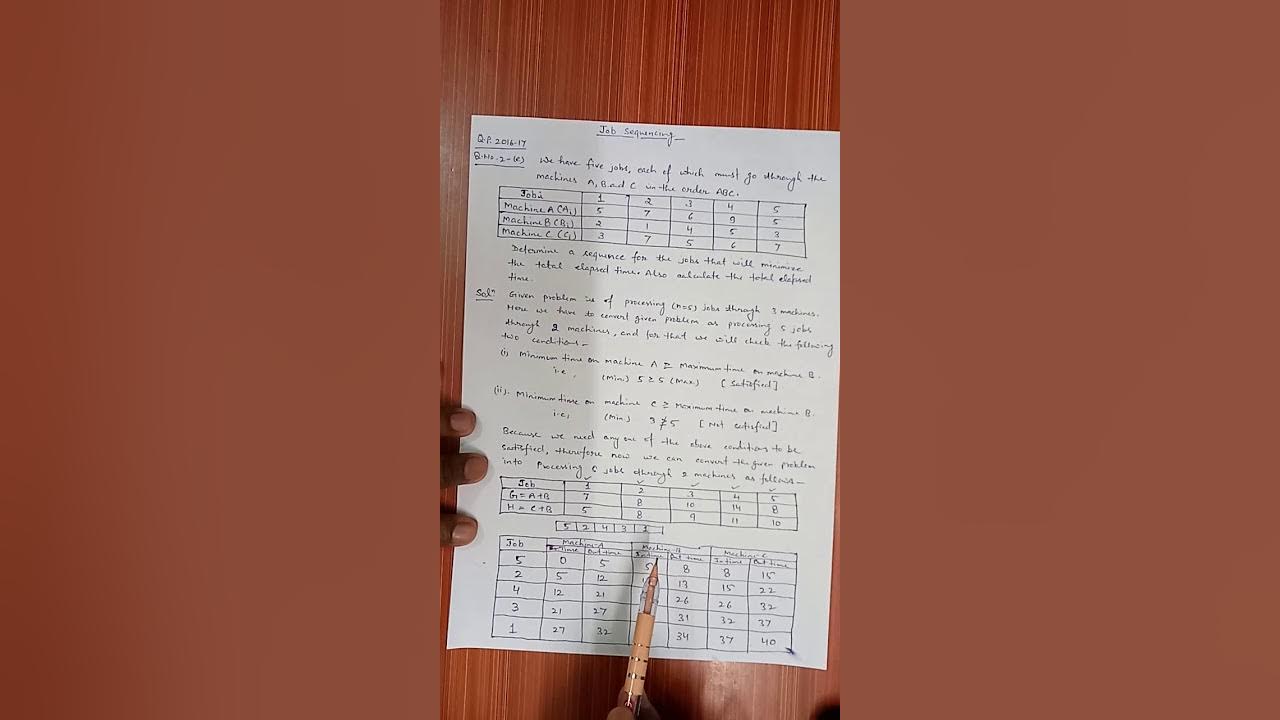 Job Sequencing
Q.P. 2016-17
Q.No.2-(e) We have five jobs, each of which must go through the
machines A, B and C in the order ABC.
Job i 1 2 3 4 5
Machine A (Ai) 5 7 6 9 5
Machine B (Bi) 2 1 4 5 3
Machine C (Ci) 3 7 5 6 7
Determine a sequence for the jobs that will minimize
the total elapsed time. Also calculate the total elapsed
time.
Solⁿ Given problem is of processing (n=5) jobs through 3 machines.
Here we have to convert given problem as processing 5 jobs
through 2 machines, and for that we will check the following
two conditions-
(i) Minimum time on machine A ≥ Maximum time on machine B.
i.e., (Min.) 5 ≥ 5 (Max.) [Satisfied]
(ii). Minimum time on machine C ≥ Maximum time on machine B.
i.e., (Min.) 3 ≱ 5 [Not satisfied]
Because we need any one of the above conditions to be
satisfied, therefore now we can convert the given problem
into Processing 6 jobs through 2 machines as follows-
Job 1 2 3 4 5
G = A+B 7 8 10 14 8
H = C+B 5 8 9 11 10
5 2 4 3 1
Job Machine-A Machine-B Machine-C
In time Out time In time Out time In time Out time
5 0 5 5 8 8 15
2 5 12 13 15 22
4 12 21 26 26 32
3 21 27 31 32 37
1 27 32 34 37 40